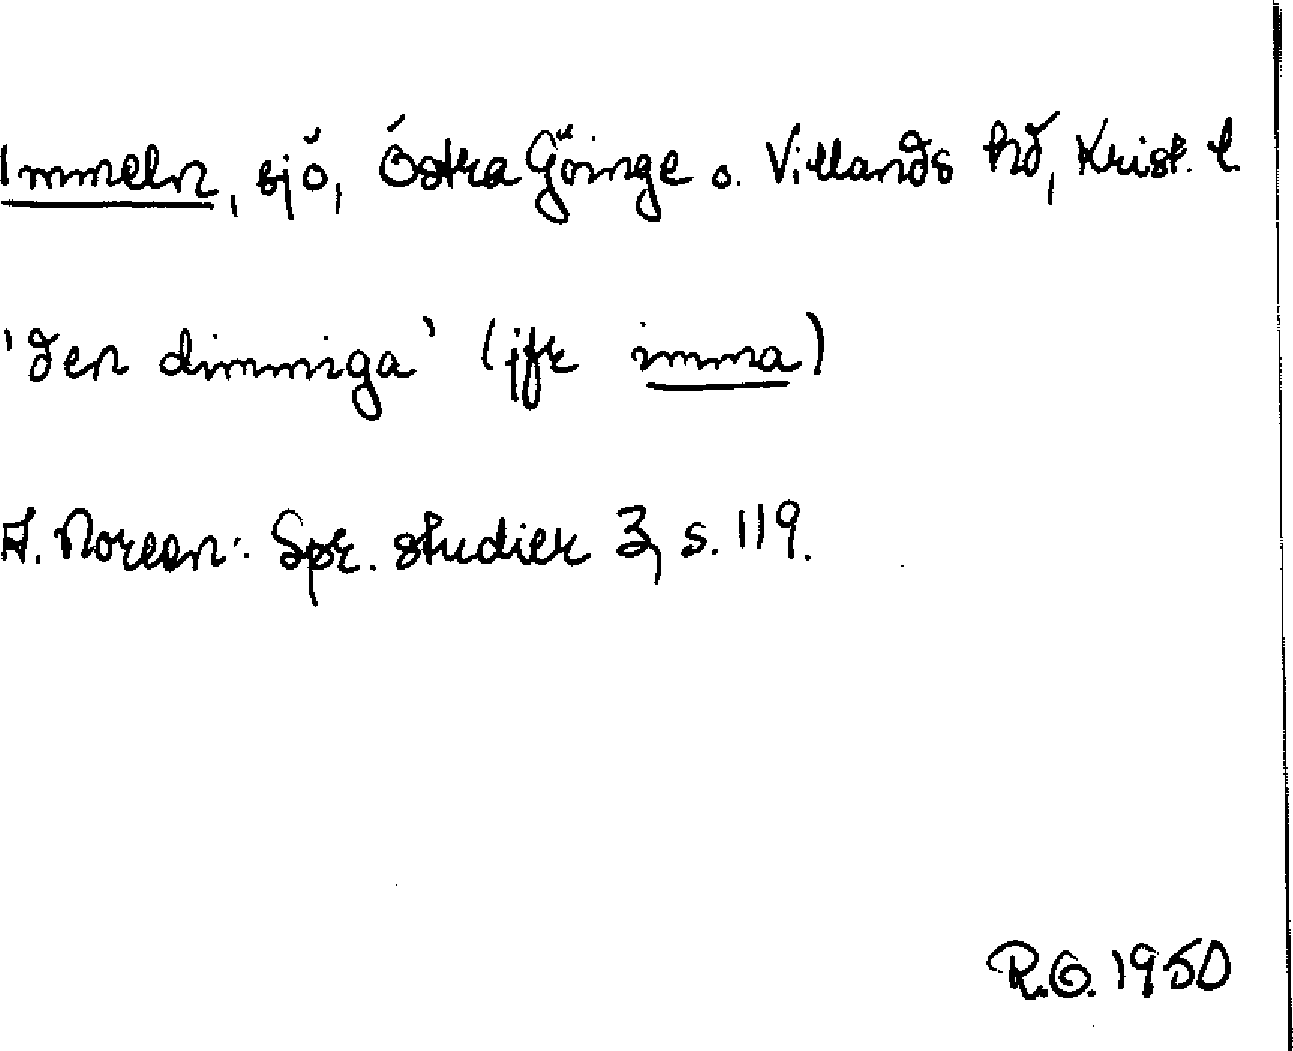 Immeln, sjö, Östra Göinge o. Villands hd, Krist. l.
'den dimmiga' (jfr imma)
A. Noreen: Spr. studier 3, s. 119.
R.O. 1950